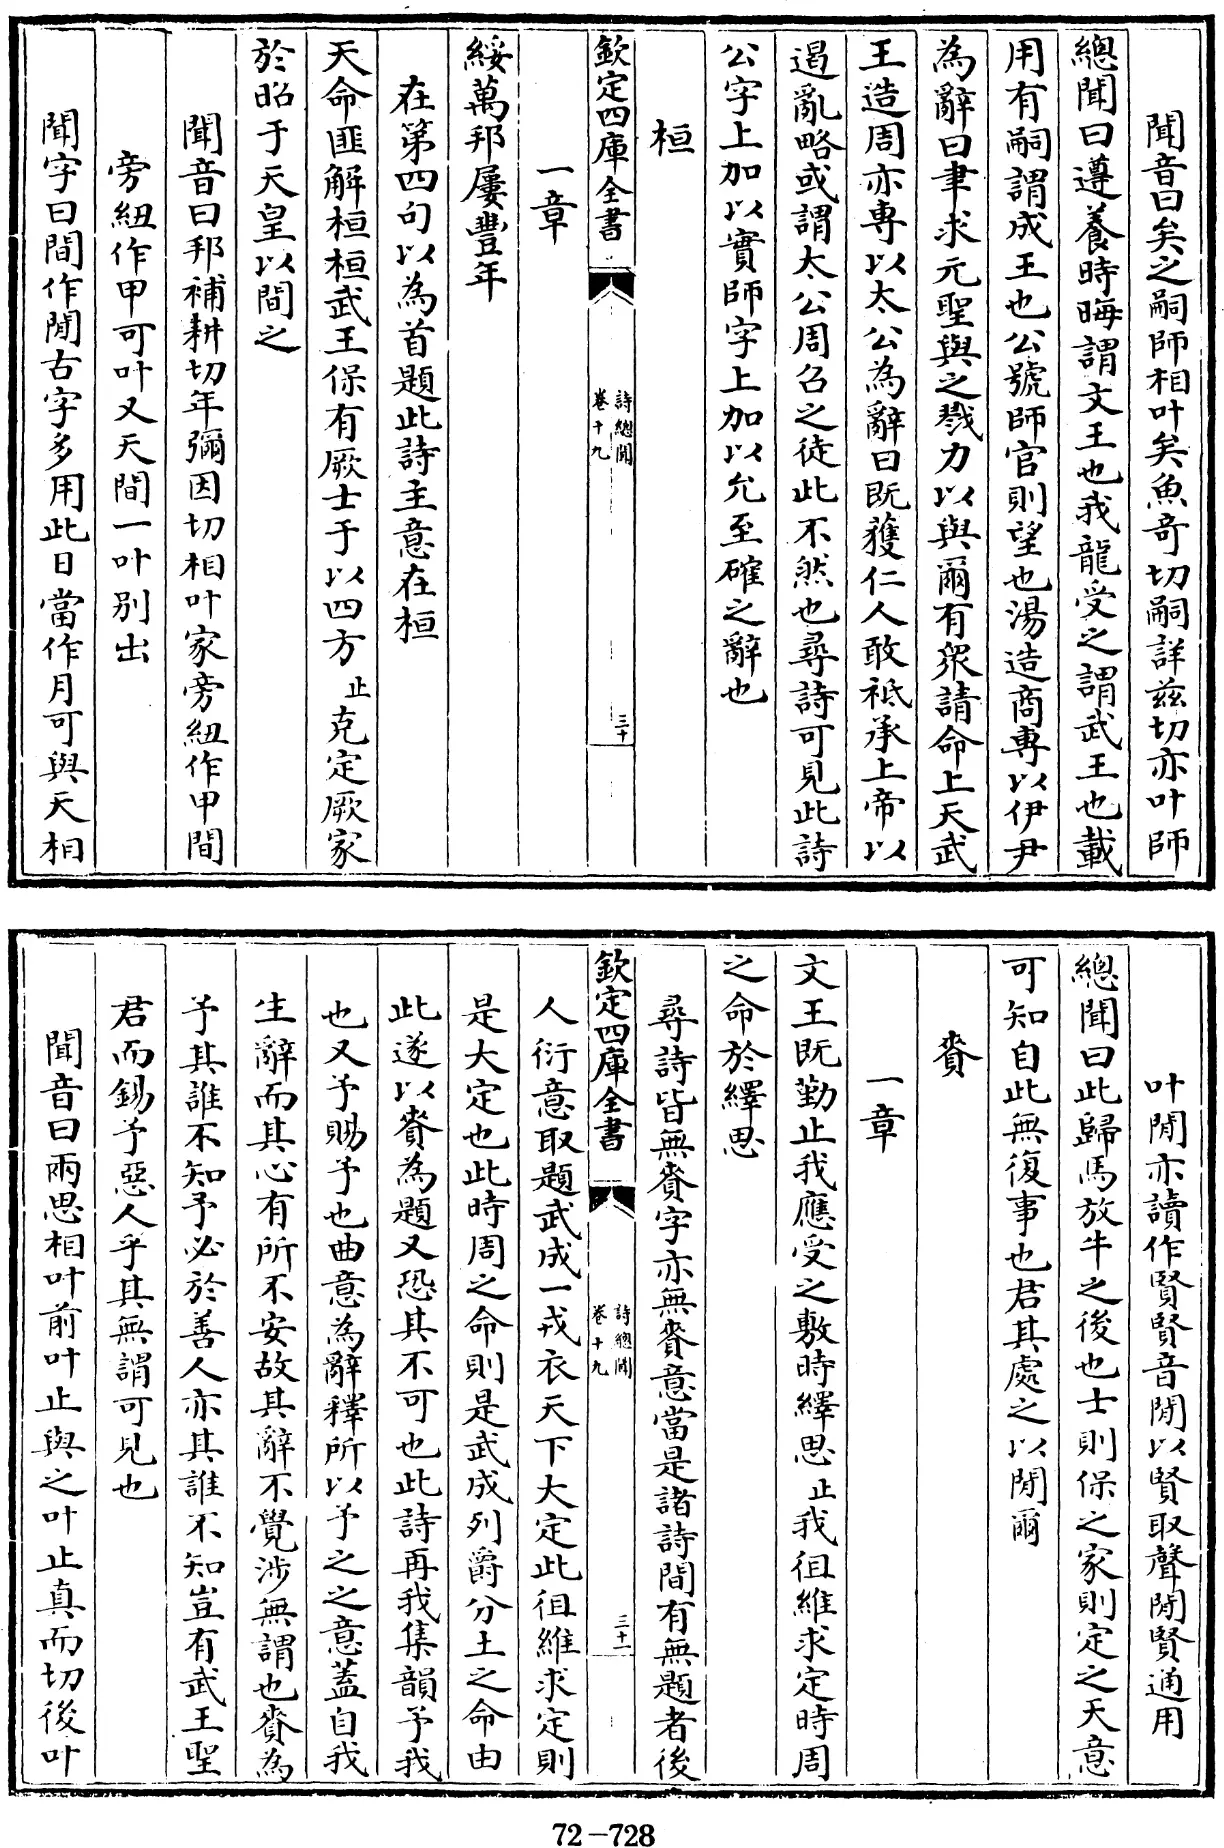 聞音曰矣之嗣師相叶矣魚竒切嗣詳兹切亦叶師
總聞曰遵養時晦謂文王也我龍受之謂武王也載
用有嗣謂成王也公號師官則望也湯造商専以伊尹
為辭曰聿求元聖與之戮力以與爾有衆請命上天武
王造周亦専以太公為辭曰既獲仁人敢祗承上帝以
遏亂略或謂太公周召之徒此不然也尋詩可見此詩
公字上加以實師字上加以允至確之辭也
桓
欽定四庫全書
詩總聞
卷十九
三十
一章
綏萬邦屢豐年
在第四句以為首題此詩主意在桓
天命匪解桓桓武王保有厥士于以四方止克定厥家
於昭于天皇以間之
聞音曰邦補耕切年彌因切相叶家旁紐作甲間
旁紐作甲可叶又天間一叶别出
聞字曰間作閒古字多用此日當作月可與天相
叶閒亦讀作賢賢音閒以賢取聲閒賢通用
總聞曰此歸馬放牛之後也士則保之家則定之天意
可知自此無復事也君其處之以閒爾
賚
一章
文王既勤止我應受之敷時繹思止我徂維求定時周
之命於繹思
尋詩皆無賚字亦無賚意當是諸詩間有無題者後
欽定四庫全書
詩總聞
卷十九
三十一
人衍意取題武成一戎衣天下大定此徂維求定則
是大定也此時周之命則是武成列爵分土之命由
此遂以賚為題又恐其不可也此詩再我集韻予我
也又予賜予也曲意為辭釋所以予之之意蓋自我
生辭而其心有所不安故其辭不覺涉無謂也賚為
予其誰不知予必於善人亦其誰不知豈有武王聖
君而錫予惡人乎其無謂可見也
聞音曰兩思相叶前叶止與之叶止真而切後叶
72-728